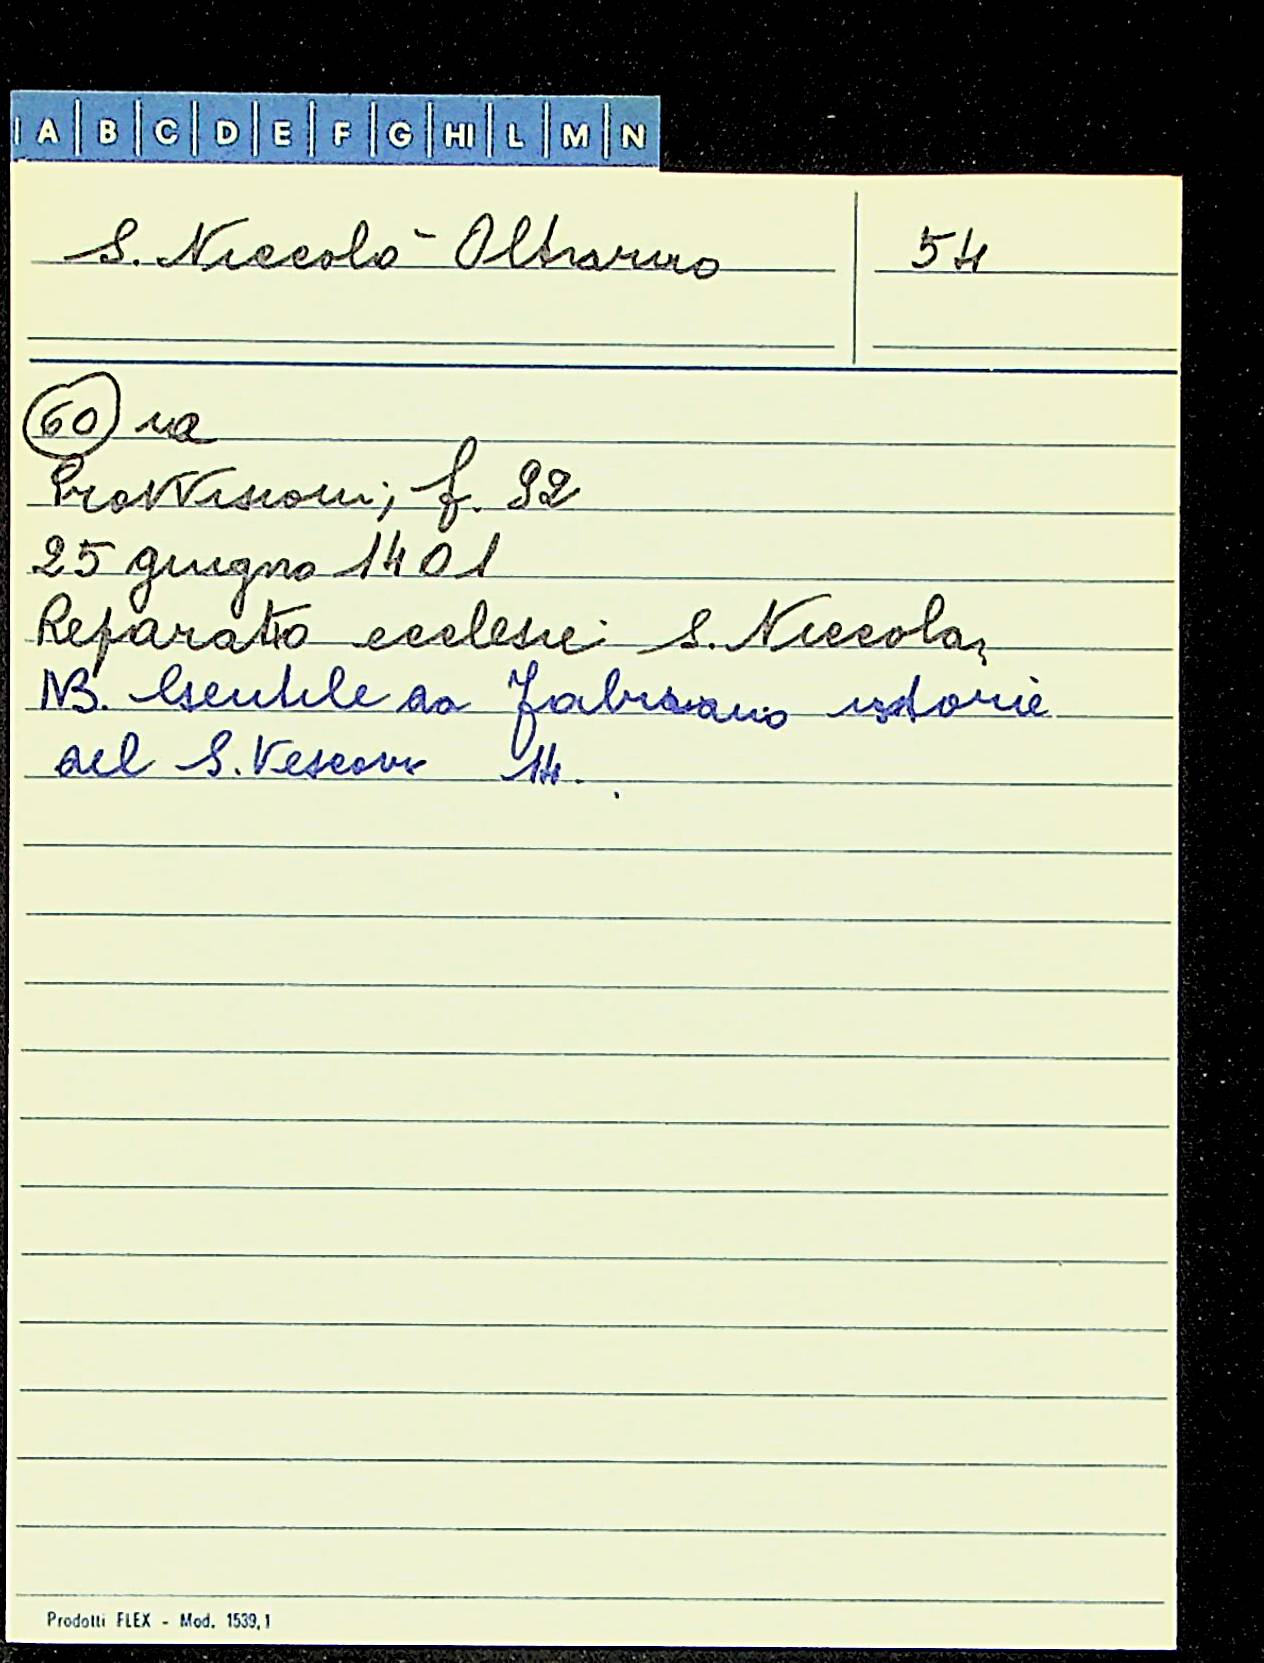 A B C D E F G HI L M N
S. Niccolò Oltrarno 54
60 ra
Provvisioni, f. 92
25 giugno 1401
Reparatio ecclesie S. Niccolai
NB. Gentile da Fabriano istorie
del S. Vescovo 14 .
Prodotti FLEX - Mod. 1539,1